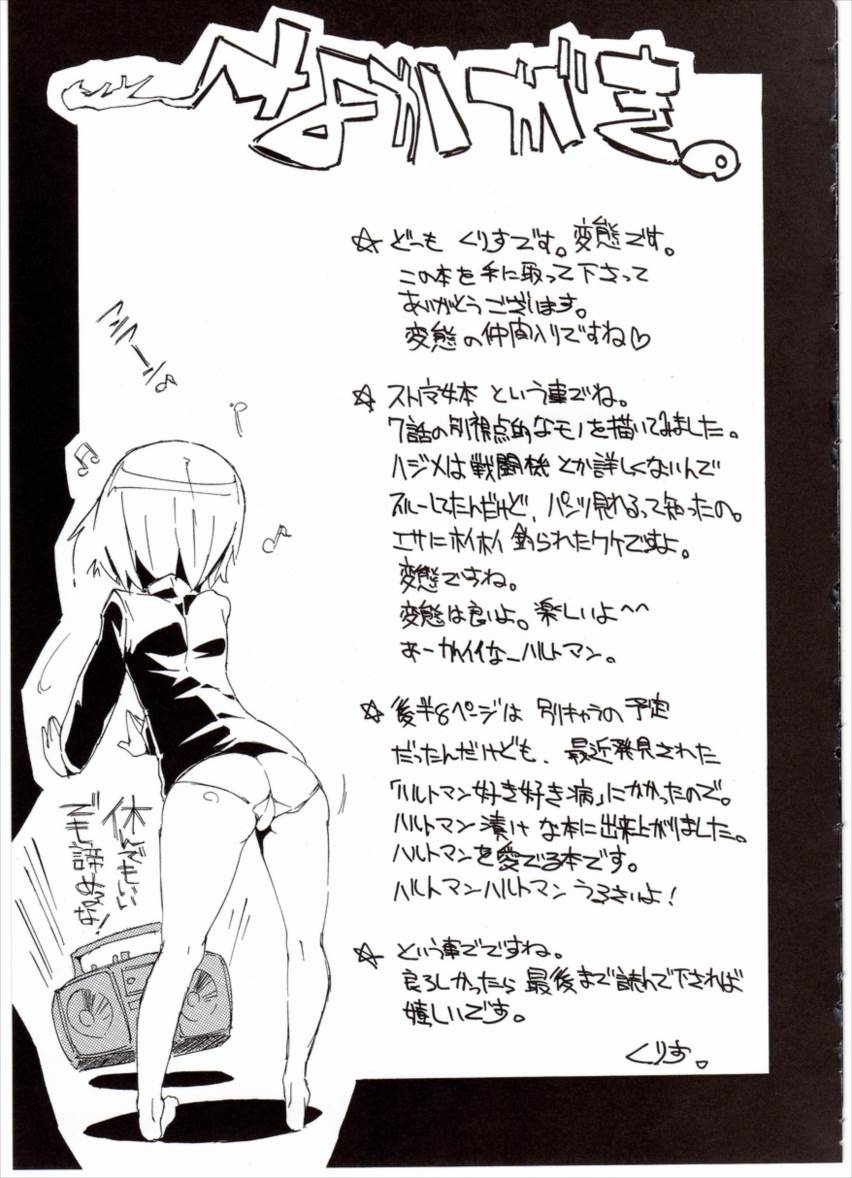 なかがき。
☆ どーも くりすです。変態です。
この本を手に取って下さって
ありがとうございます。
変態の仲間入りですね♡
☆ ストマ女本 という事でね。
7話の別視点的なモノを描いてみました。
ハジメは戦闘機とか詳しくないんで
スルーしてたんだけど、パンツ見れるって知ったの。
エサにホイホイ釣られたワケですよ。
変態ですね。
変態は良いよ。楽しいよ^^
あーカワイイなーハルトマン。
☆ 後半8ページは 別キャラの予定
だったんだけども、最近発見された
「ハルトマン好き好き病」にかかったので。
ハルトマン漬けな本に出来上がりました。
ハルトマンを愛でる本です。
ハルトマンハルトマンうるさいよ!
☆ という事でですね。
良ろしかったら最後まで読んで下されば
嬉しいです。
くりす。
休んでもいい
でも諦めるな!